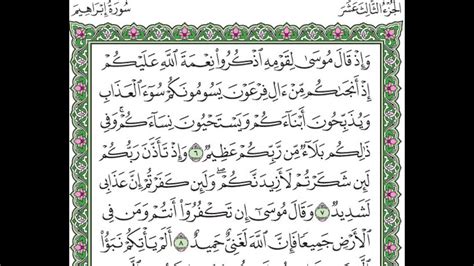 الجزء الثالث عشر سورة إبراهيم
وَإِذْ قَالَ مُوسَىٰ لِقَوْمِهِ ٱذْكُرُوا۟ نِعْمَةَ ٱللَّهِ عَلَيْكُمْ
إِذْ أَنجَىٰكُم مِّنْ ءَالِ فِرْعَوْنَ يَسُومُونَكُمْ سُوٓءَ ٱلْعَذَابِ
وَيُذَبِّحُونَ أَبْنَآءَكُمْ وَيَسْتَحْيُونَ نِسَآءَكُمْ ۚ وَفِى
ذَٰلِكُم بَلَآءٌ مِّن رَّبِّكُمْ عَظِيمٌ ٦ وَإِذْ تَأَذَّنَ رَبُّكُمْ
لَئِن شَكَرْتُمْ لَأَزِيدَنَّكُمْ ۖ وَلَئِن كَفَرْتُمْ إِنَّ عَذَابِى
لَشَدِيدٌ ٧ وَقَالَ مُوسَىٰٓ إِن تَكْفُرُوٓا۟ أَنتُمْ وَمَن فِى
ٱلْأَرْضِ جَمِيعًا فَإِنَّ ٱللَّهَ لَغَنِىٌّ حَمِيدٌ ٨ أَلَمْ يَأْتِكُمْ نَبَؤُا۟